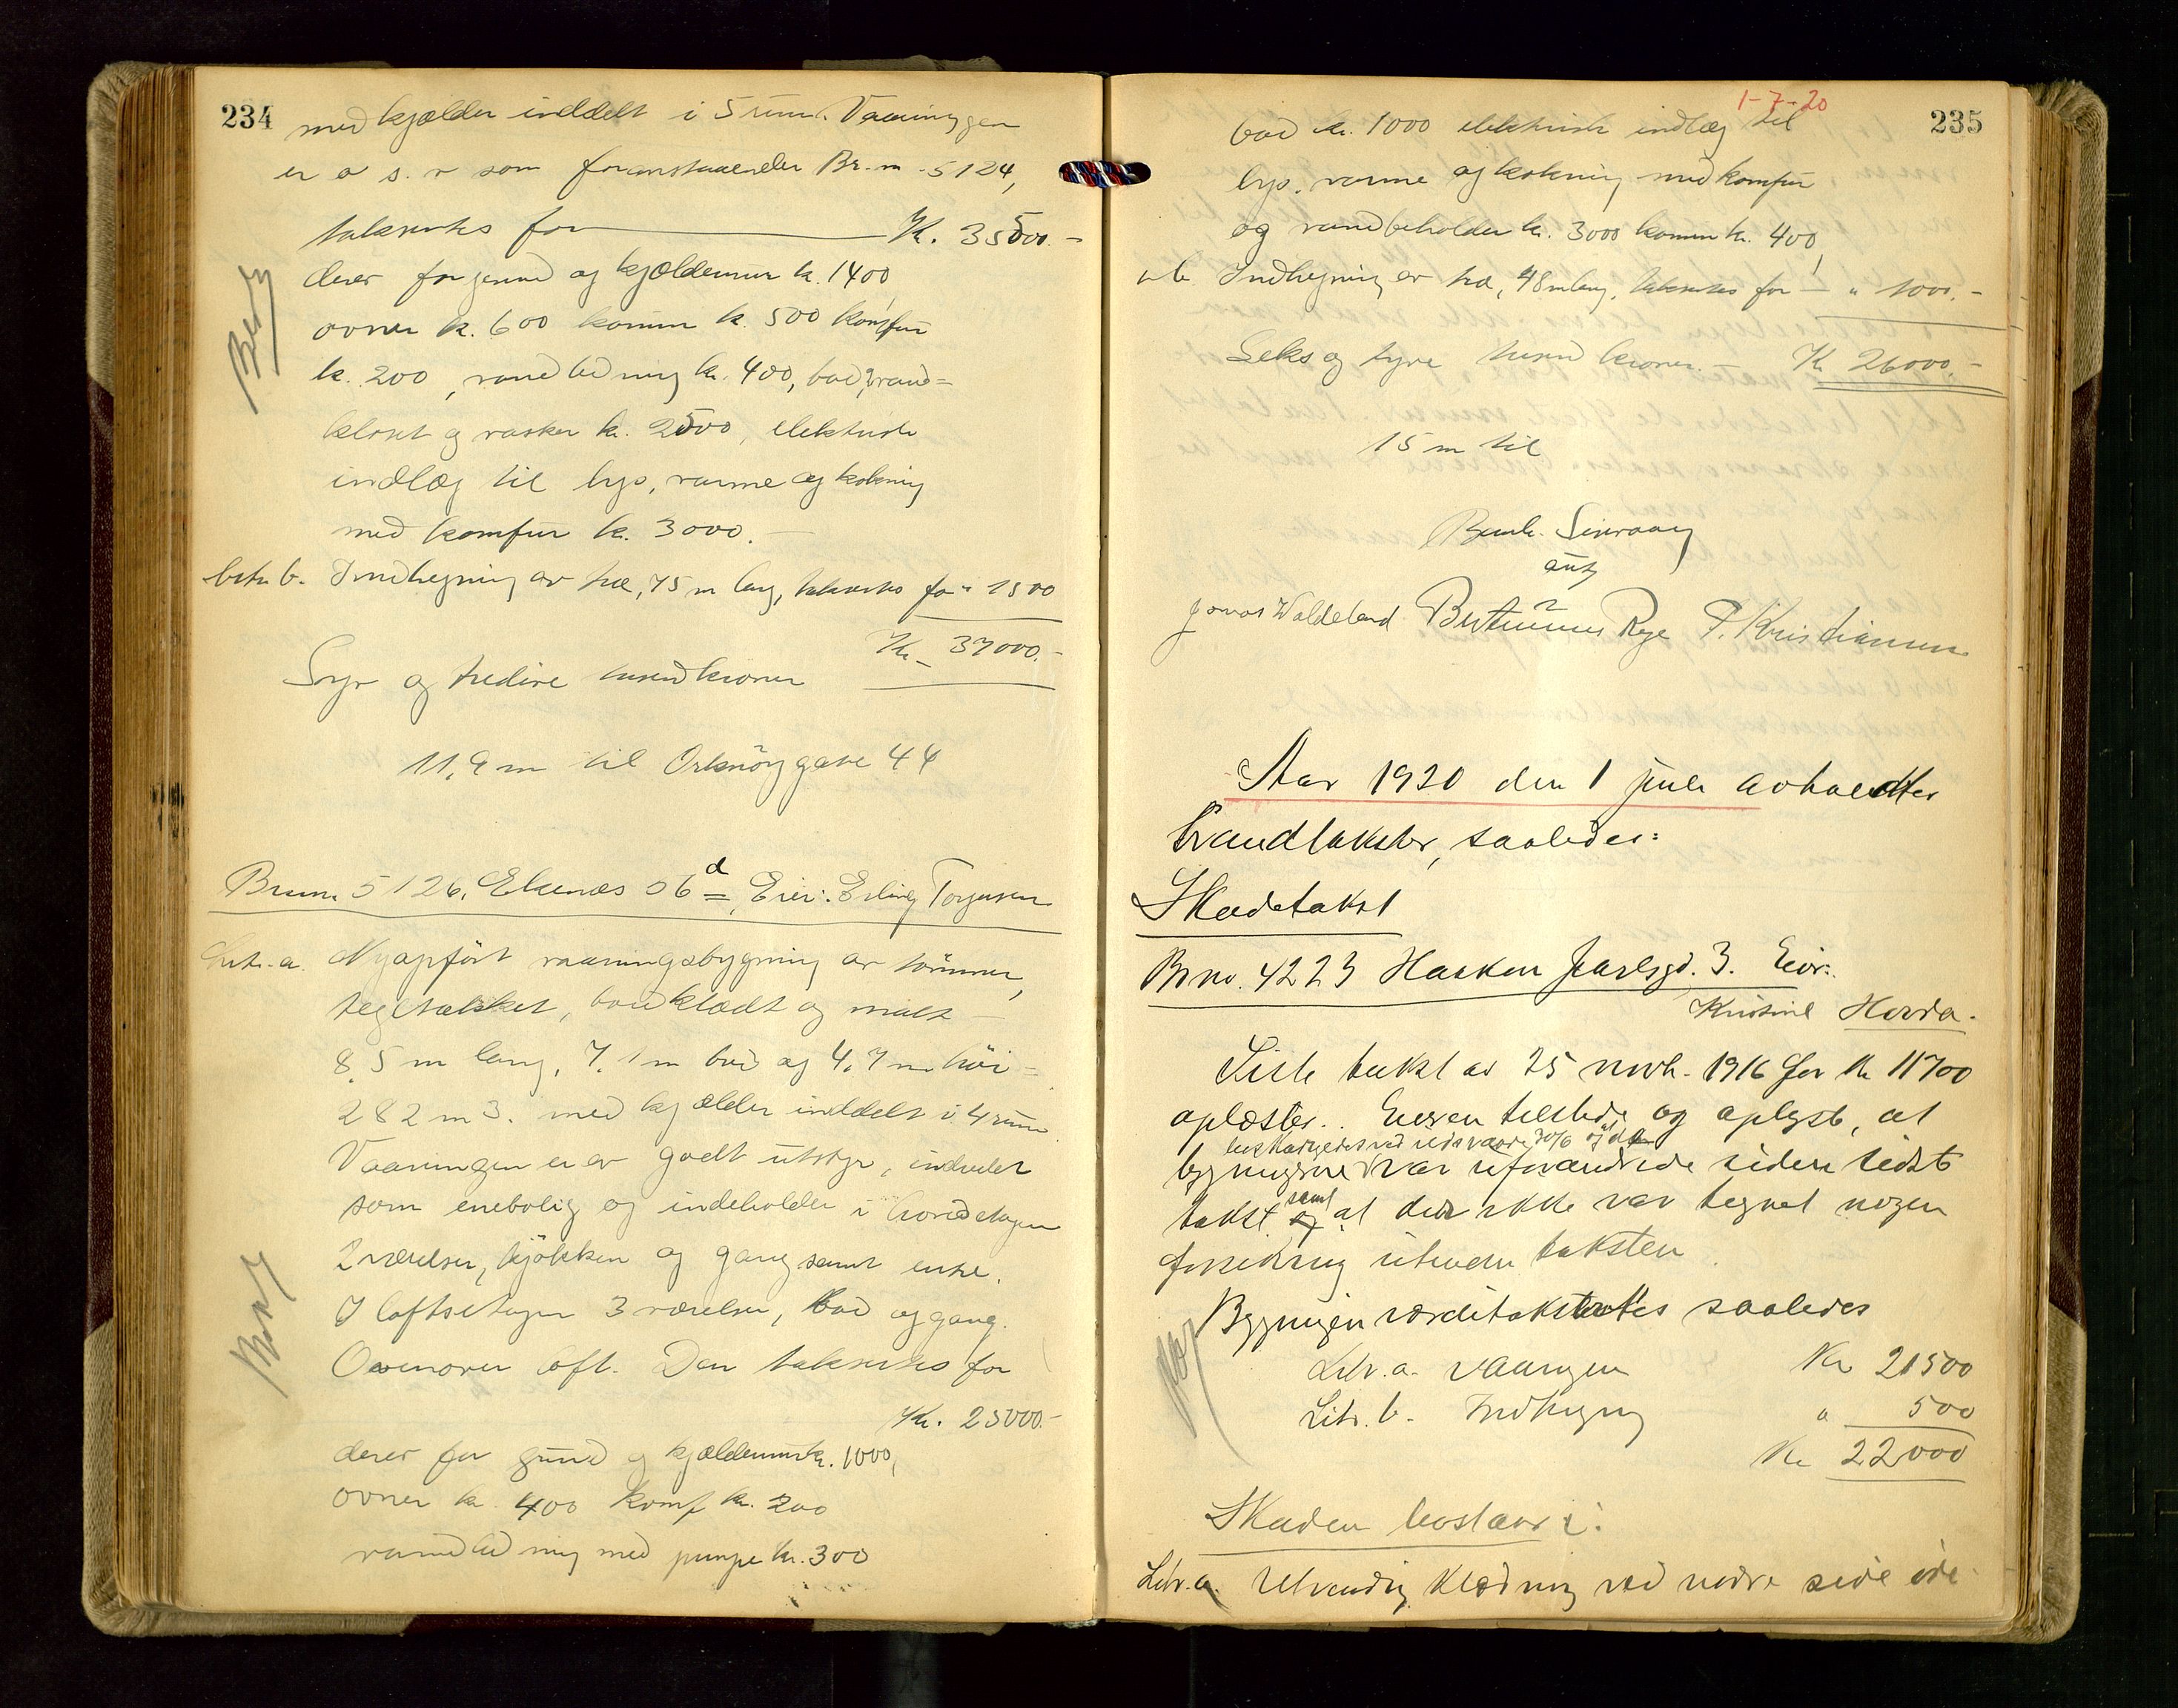 234
med kjælder inddelt i 5 rum. Vaaningen
er o s. v som foranstaaende Br.nr. 5124,
takseres for Kr. 35500.-
derav for grund og kjældermur kr. 1400,
ovner kr. 600 komm kr. 500 komfur
kr. 200, vandledning kr. 400, bad, vand-
kloset og vasker kr. 2500, elektrisk
indlæg til lys, varme og kokning
med komfur kr. 3000.-
Litr. b. Indhegning av træ, 75 m lang, takseres for " 1500
Kr. 37000.-
Syv og tredive tusend kroner
11,9 m til Orknøygate 44
Br.nr. 5126, Ekenæs 56 d, Eier: Erling Torgersen
Litr. a. Nyopført vaaningsbygning av tømmer,
tegltækket, bordklædt og malt -
8,5 m lang, 7,1 m bred og 4,7 m høi =
282 m3. med kjælder inddelt i 4 rum
Vaaningen er av godt utstyr, indredet
som enebolig og indeholder i hovedetagen
2 værelser, kjøkken og gang samt entre.
I loftsetagen 3 værelser, bad og gang.
Ovenover loft. Den takseres for
Kr. 25000.-
derav for grund og kjældermur kr. 1000,
ovner kr. 400 komf kr. 200
vandledning med pumpe kr. 300
1-7-20
235
bad kr. 1000 elektrisk indlæg til
lys, varme og kokning med komfur
og vandbeholder kr. 3000 komm kr. 400,
" b. Indhegning av træ, 48 m lang, takseres for - " 1000.-
Seks og tyve tusend kroner. - Kr 26000.-
15 m til
Jonas Waldeland Bertinius Rege P. Kristiansen
Aar 1920 den 1 juli avholdtes
brandtakster, saaledes:
Skadetakst
Br no. 4223 Haakon Jarlsgt. 3. Eier:
Kristine Hovda.
Siste takst av 25 novb. 1916 for Kr 11700
oplæstes. Eieren tilstede og oplyste, at
bygningerne var uforandrede siden sidste
takst samt at der ikke var tegnet nogen
forsikring utenom taksten
Bygningen værditakstertes saaledes
Litr. a. Vaaningen Kr 21500
Litr. b. Indhegning " 500
Kr 22000
Skaden bestaar i:
Litr. a. Utvendig klædning ved nedre side øde-